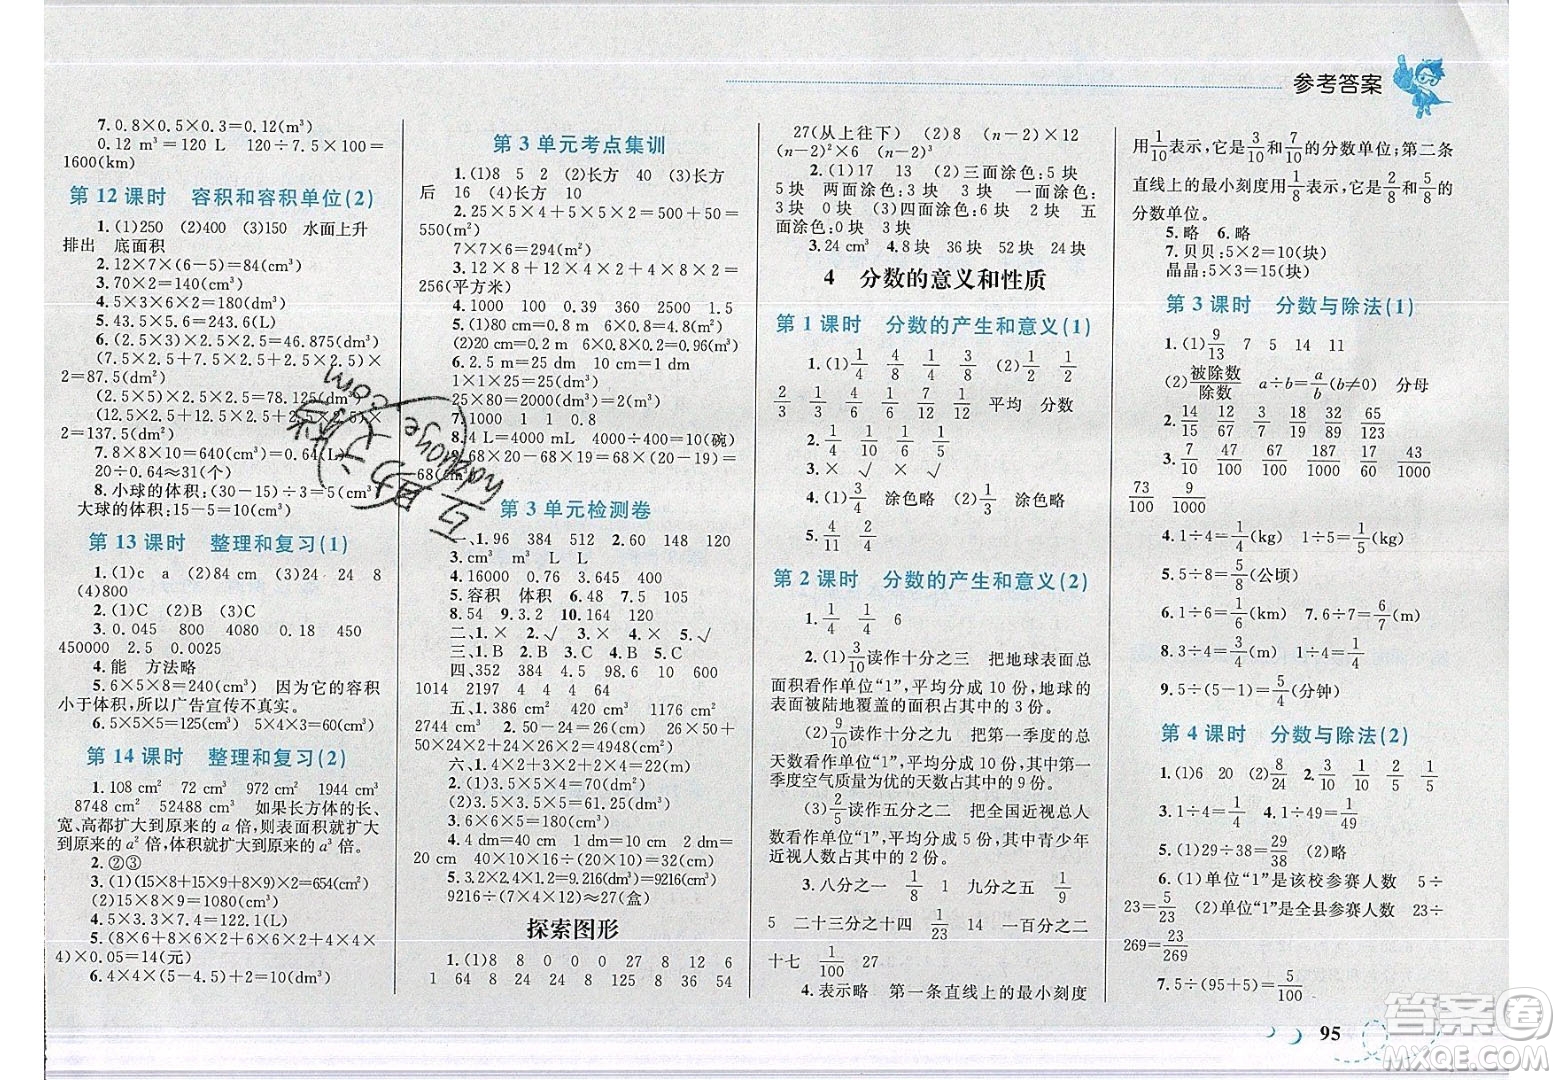 参考答案
7. 0.8×0.5×0.3=0.12(m³)
0.12 m³=120 L　120÷7.5×100=
1600(km)
第 12 课时　容积和容积单位(2)
1. (1)250　(2)400　(3)150　水面上升
排出　底面积
2. 12×7×(6-5)=84(cm³)
3. 70×2=140(cm³)
4. 5×3×6×2=180(dm³)
5. 43.5×5.6=243.6(L)
6. (2.5×3)×2.5×2.5=46.875(dm³)
(7.5×2.5+7.5×2.5+2.5×2.5)×
2=87.5(dm²)
(2.5×5)×2.5×2.5=78.125(dm³)
(2.5×12.5+2.5×12.5+2.5×2.5)×
2=137.5(dm²)
7. 8×8×10=640(cm³)=0.64(L)
20÷0.64≈31(个)
8. 小球的体积:(30-15)÷3=5(cm³)
大球的体积:15-5=10(cm³)
第 13 课时　整理和复习(1)
1. (1)c　a　(2)84 cm　(3)24　24　8
(4)800
2. (1)C　(2)B　(3)C
3. 0.045　800　4080　0.18　450
450000　2.5　0.0025
4. 能　方法略
5. 6×5×8=240(cm³)　因为它的容积
小于体积,所以广告宣传不真实。
6. 5×5×5=125(cm³)　5×4×3=60(cm³)
第 14 课时　整理和复习(2)
1. 108 cm²　72 cm³　972 cm²　1944 cm³
8748 cm²　52488 cm³　如果长方体的长、
宽、高都扩大到原来的 a 倍,则表面积就扩大
到原来的 a² 倍,体积就扩大到原来的 a³ 倍。
2. ②③
3. (1)(15×8+15×9+8×9)×2=654(cm²)
(2)15×8×9=1080(cm³)
4. 5×3.4×7.2=122.4(L)
5. (8×6+8×6×2+6×6×2+6×
4)×0.05=14(元)
6. 4×4×(5-4.5)+2=10(dm³)
第 3 单元考点集训
1. (1)8　5　2　(2)长方　40　(3)长方
后　16　(4)长方　50
2. 25×5×4+5×5×2=500+50=
550(m²)
7×7×6=294(m²)
3. 12×8+12×4×2+8×4×2=
256(平方米)
4. 1000　100　0.39　360　1800
5. (1)80 cm=0.8 m　6×0.8=4.8(m)
(2)20 cm=0.2 m　6×6×0.2=7.2(m³)
6. 2.5 m=25 dm　10 cm=1 dm
1×1×25=25(dm³)
25×80=2000(dm³)=2(m³)
7. 1000　1　1　0.8
8. 4 L=4000 mL　4000÷400=10(碗)
9. 68×20-68×16=68×(20-16)=
68(cm³)
第 3 单元检测卷
一、1. 96　384　512　2. 60　148　120
3. cm³　m³　L　L
4. 16000　0.76　3.645　3　645
5. 容积　体积　6. 48　7. 5　105
8. 54　9. 3.2　10. 164　120
二、1. ×　2. √　3. ×　4. ×　5. √
三、1. B　2. B　3. A　4. C　5. B
四、352　384　54　27　1150
1014　2197　4　4　1648　3840
五、1. 5400 cm²　27000 cm³　1176 cm²
2744 cm³　2. 50-24=26　26×50+
50×24×2+24×26×2=5000(dm²)
六、1. 4×2+4×3×2+2×3×2=44(m²)
2. (1)5×3.5×4=70(dm³)
(2)3.5×3.5×5=61.25(dm³)
3. 6×6×5=180(cm³)
4. 4 dm=40 cm　1 dm=10 cm　2 dm=
20 cm　40×10×16÷(20×20)=16(cm)
5. 3.2×2.4×1.2=9.216(dm³)=9216(cm³)
9216÷(7×4×12)≈27(盒)
探索图形
1. (1)8　8　0　0　0　27　8　12　6
1　64　8　24　24　8　125　8　36　54
27(从上往下)　(2)8　(n-2)×12
(n-2)²×6　(n-2)³
2. (1)17　(2)15　(3)三面涂色:1块
5块　两面涂色:9块　4块　一面涂色:
3块　0块　(3)四面涂色:6块　2块　五
面涂色:0块　5块
3. 24 cm³　4. 8块　36块　52块　24块
4　分数的意义和性质
第 1 课时　分数的产生和意义(1)
1. (1)1/4　4/8　1/4　4/9　(2)1/2　1/2
2/3　1/3　4/12　7/12　1/9　平均　分数
2. 1/2　4/9　1/6　1/4
3. ×　√　×　√
4. (1)3/4　涂色略　(2)1/3　涂色略
5. 4/11　2/4
第 2 课时　分数的产生和意义(2)
1. 1/4　1/4　6
2. (1)3/10读作十分之三　把地球表面总
面积看作单位“1”,平均分成 10 份,地球的
表面被陆地覆盖的面积占其中的 3 份。
(2)9/10读作十分之九　把第一季度的总
天数看作单位“1”,平均分成 10 份,其中第一
季度空气质量为优的天数占其中的 9 份。
(3)2/5读作五分之二　把全国近视总人
数看作单位“1”,平均分成 5 份,其中青少年
近视人数占其中的 2 份。
3. 八分之一　1/8　1　九分之五　1/9
5　二十三分之十四　1/23　14　一百分之二
十七　1/100　27
4. 表示略　第一条直线上的最小刻度
用1/10表示,它是3/10和7/10的分数单位;第二条
直线上的最小刻度用1/8表示,它是2/8和5/8的
分数单位。
5. 略　6. 略
7. 贝贝:5×2=10(块)
晶晶:5×3=15(块)
第 3 课时　分数与除法(1)
1. (1)9/13　7　5　14　11
(2)被除数/除数　a÷b=a/b(b≠0)　分母
2. 14/15　12/19　16/25　32/49　65/123
3. 7/10　47/100　59/1000　67/100　43/1000
73/100　9/1000
4. 1÷4=1/4(kg)　1÷5=1/5(kg)
5. 5÷8=5/8(公顷)
6. 1÷6=1/6(km)　7. 6÷7=6/7(m)
8. 3÷4=3/4(m)　1÷4=1/4
9. 5÷4=5/4(分钟)
第 4 课时　分数与除法(2)
1. (1)6　20　(2)8/24　2. 3/10　2/5　1/5
3. 1÷4=1/4　4. 1÷49=1/49
5. (1)29÷38=29/38　(2)略
6. (1)单位“1”是该校参赛人数　5÷
23=5/23　(2)单位“1”是全县参赛人数　23÷
269=23/269
7. 5÷(95+5)=5/100
95
答案圈
MXQE.COM